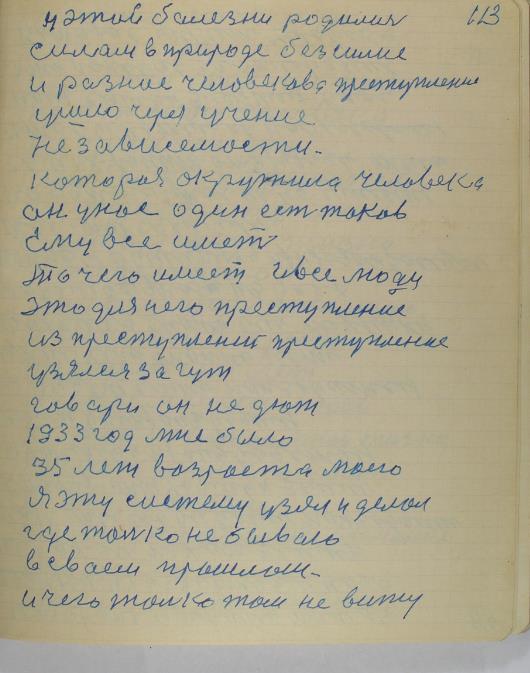 113
и этой балезни родилия
силам в природе безсилие
и разние человекова преступление
ушло через учение
независемости.
которая окружила человека
он у нас один ест таков
Ему все имет
то чего имеет и все люди
это для него преступление
из преступлений преступление
узялся за гуж
говари он не дюж
1933 год мне было
35 лет возроста моего
Я эту систему узял и делал
где толко не бывало
в сваем прошлом.
и чего толко там не вижу